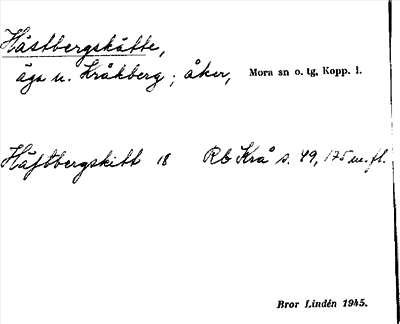 Håstbergskåtte,
äga u. Kråkberg ; åker, Mora sn o. tg, Kopp. l.
Håstbergskitt 18 Rb Krå s. 49, 175 m. fl.
Bror Lindén 1945.